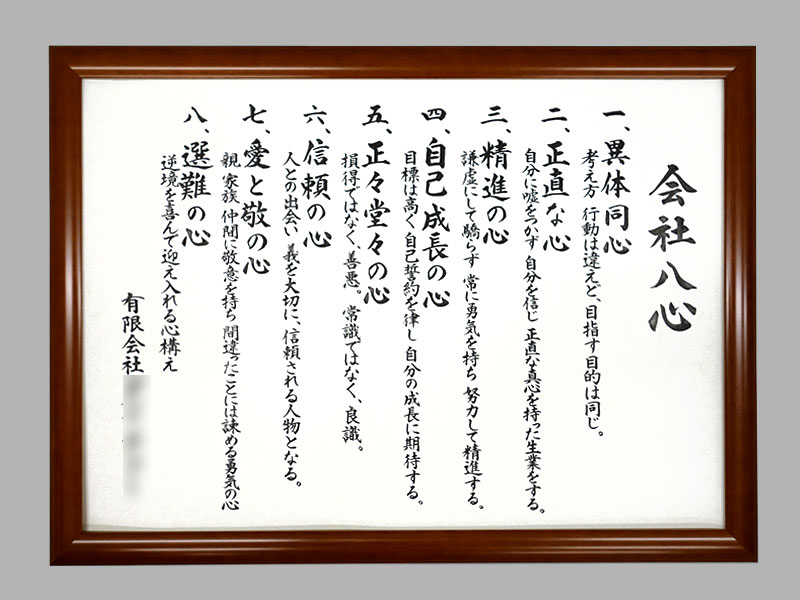 会社八心
一、異体同心
考え方 行動は違えど、目指す目的は同じ。
二、正直な心
自分に嘘をつかず 自分を信じ 正直な真心を持った生業をする。
三、精進の心
謙虚にして驕らず 常に勇気を持ち 努力して精進する。
四、自己成長の心
目標は高く 自己誓約を律し 自分の成長に期待する。
五、正々堂々の心
損得ではなく、善悪。 常識ではなく、良識。
六、信頼の心
人との出会い 義を大切に、信頼される人物となる。
七、愛と敬の心
親 家族 仲間に敬意を持ち 間違ったことには諌める勇気の心
八、選難の心
逆境を喜んで迎え入れる心構え
有限会社